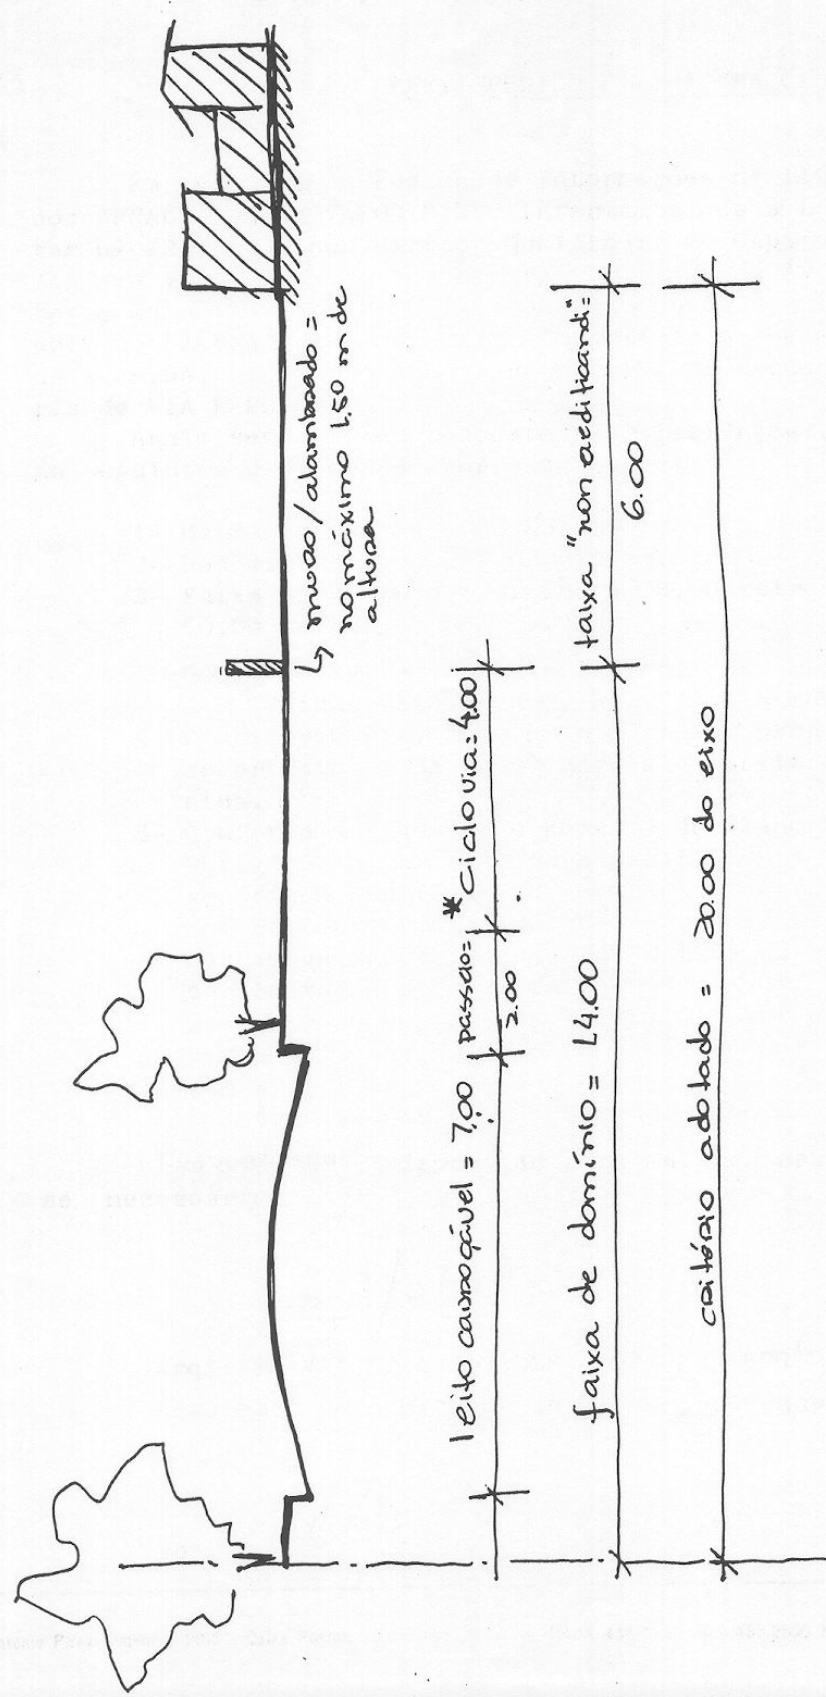 muro/alambrado =
no máximo 1,50 m de
altura
leito carroçável = 7,00
passeio =
2.00
*ciclovia = 4.00
faixa de domínio = 14.00
faixa "non aedificandi" =
6.00
critério adotado = 20.00 do eixo